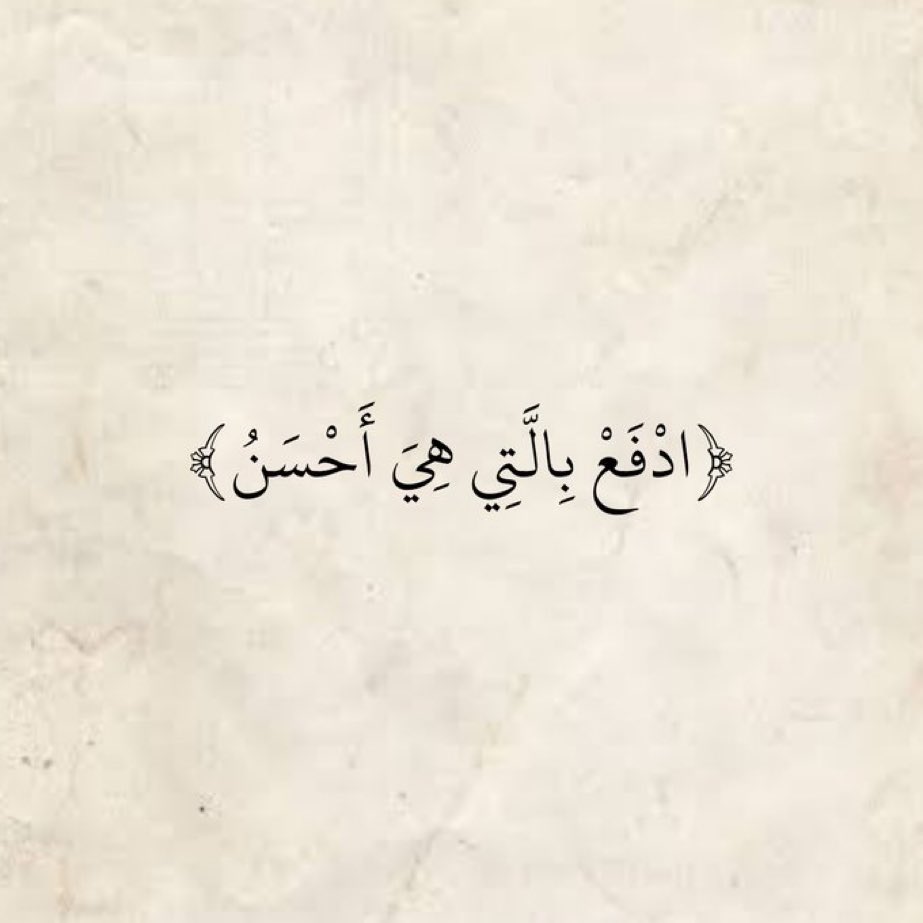 ﴿ادْفَعْ بِالَّتِي هِيَ أَحْسَنُ﴾